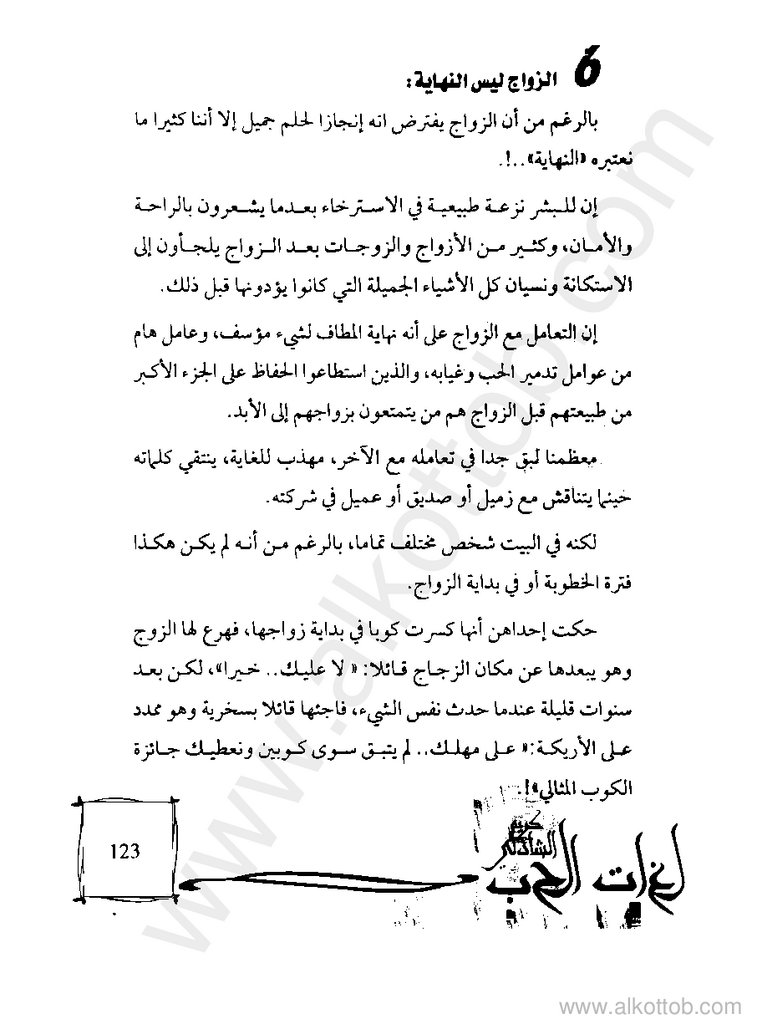 6 الزواج ليس النهاية:
بالرغم من أن الزواج يفترض انه إنجازا لحلم جميل إلا أننا كثيرا ما
نعتبره «النهاية»..!.
إن للبشر نزعة طبيعية في الاسترخاء بعدما يشعرون بالراحة
والأمان، وكثير من الأزواج والزوجات بعد الزواج يلجأون إلى
الاستكانة ونسيان كل الأشياء الجميلة التي كانوا يؤدونها قبل ذلك.
إن التعامل مع الزواج على أنه نهاية المطاف لشيء مؤسف، وعامل هام
من عوامل تدمير الحب وغيابه، والذين استطاعوا الحفاظ على الجزء الأكبر
من طبيعتهم قبل الزواج هم من يتمتعون بزواجهم إلى الأبد.
معظمنا لبق جدا في تعامله مع الآخر، مهذب للغاية، ينتقي كلماته
حينما يتناقش مع زميل أو صديق أو عميل في شركته.
لكنه في البيت شخص مختلف تماما، بالرغم من أنه لم يكن هكذا
فترة الخطوبة أو في بداية الزواج.
حكت إحداهن أنها كسرت كوبا في بداية زواجها، فهرع لها الزوج
وهو يبعدها عن مكان الزجاج قائلا: « لا عليك.. خيرا»، لكن بعد
سنوات قليلة عندما حدث نفس الشيء، فاجئها قائلا بسخرية وهو ممدد
على الأريكة: « على مهلك.. لم يتبق سوى كوبين ونعطيك جائزة
الكوب المثالي»!.
كريم
الشاذلي
لغات الحب
123
www.alkottob.com
www.alkottob.com